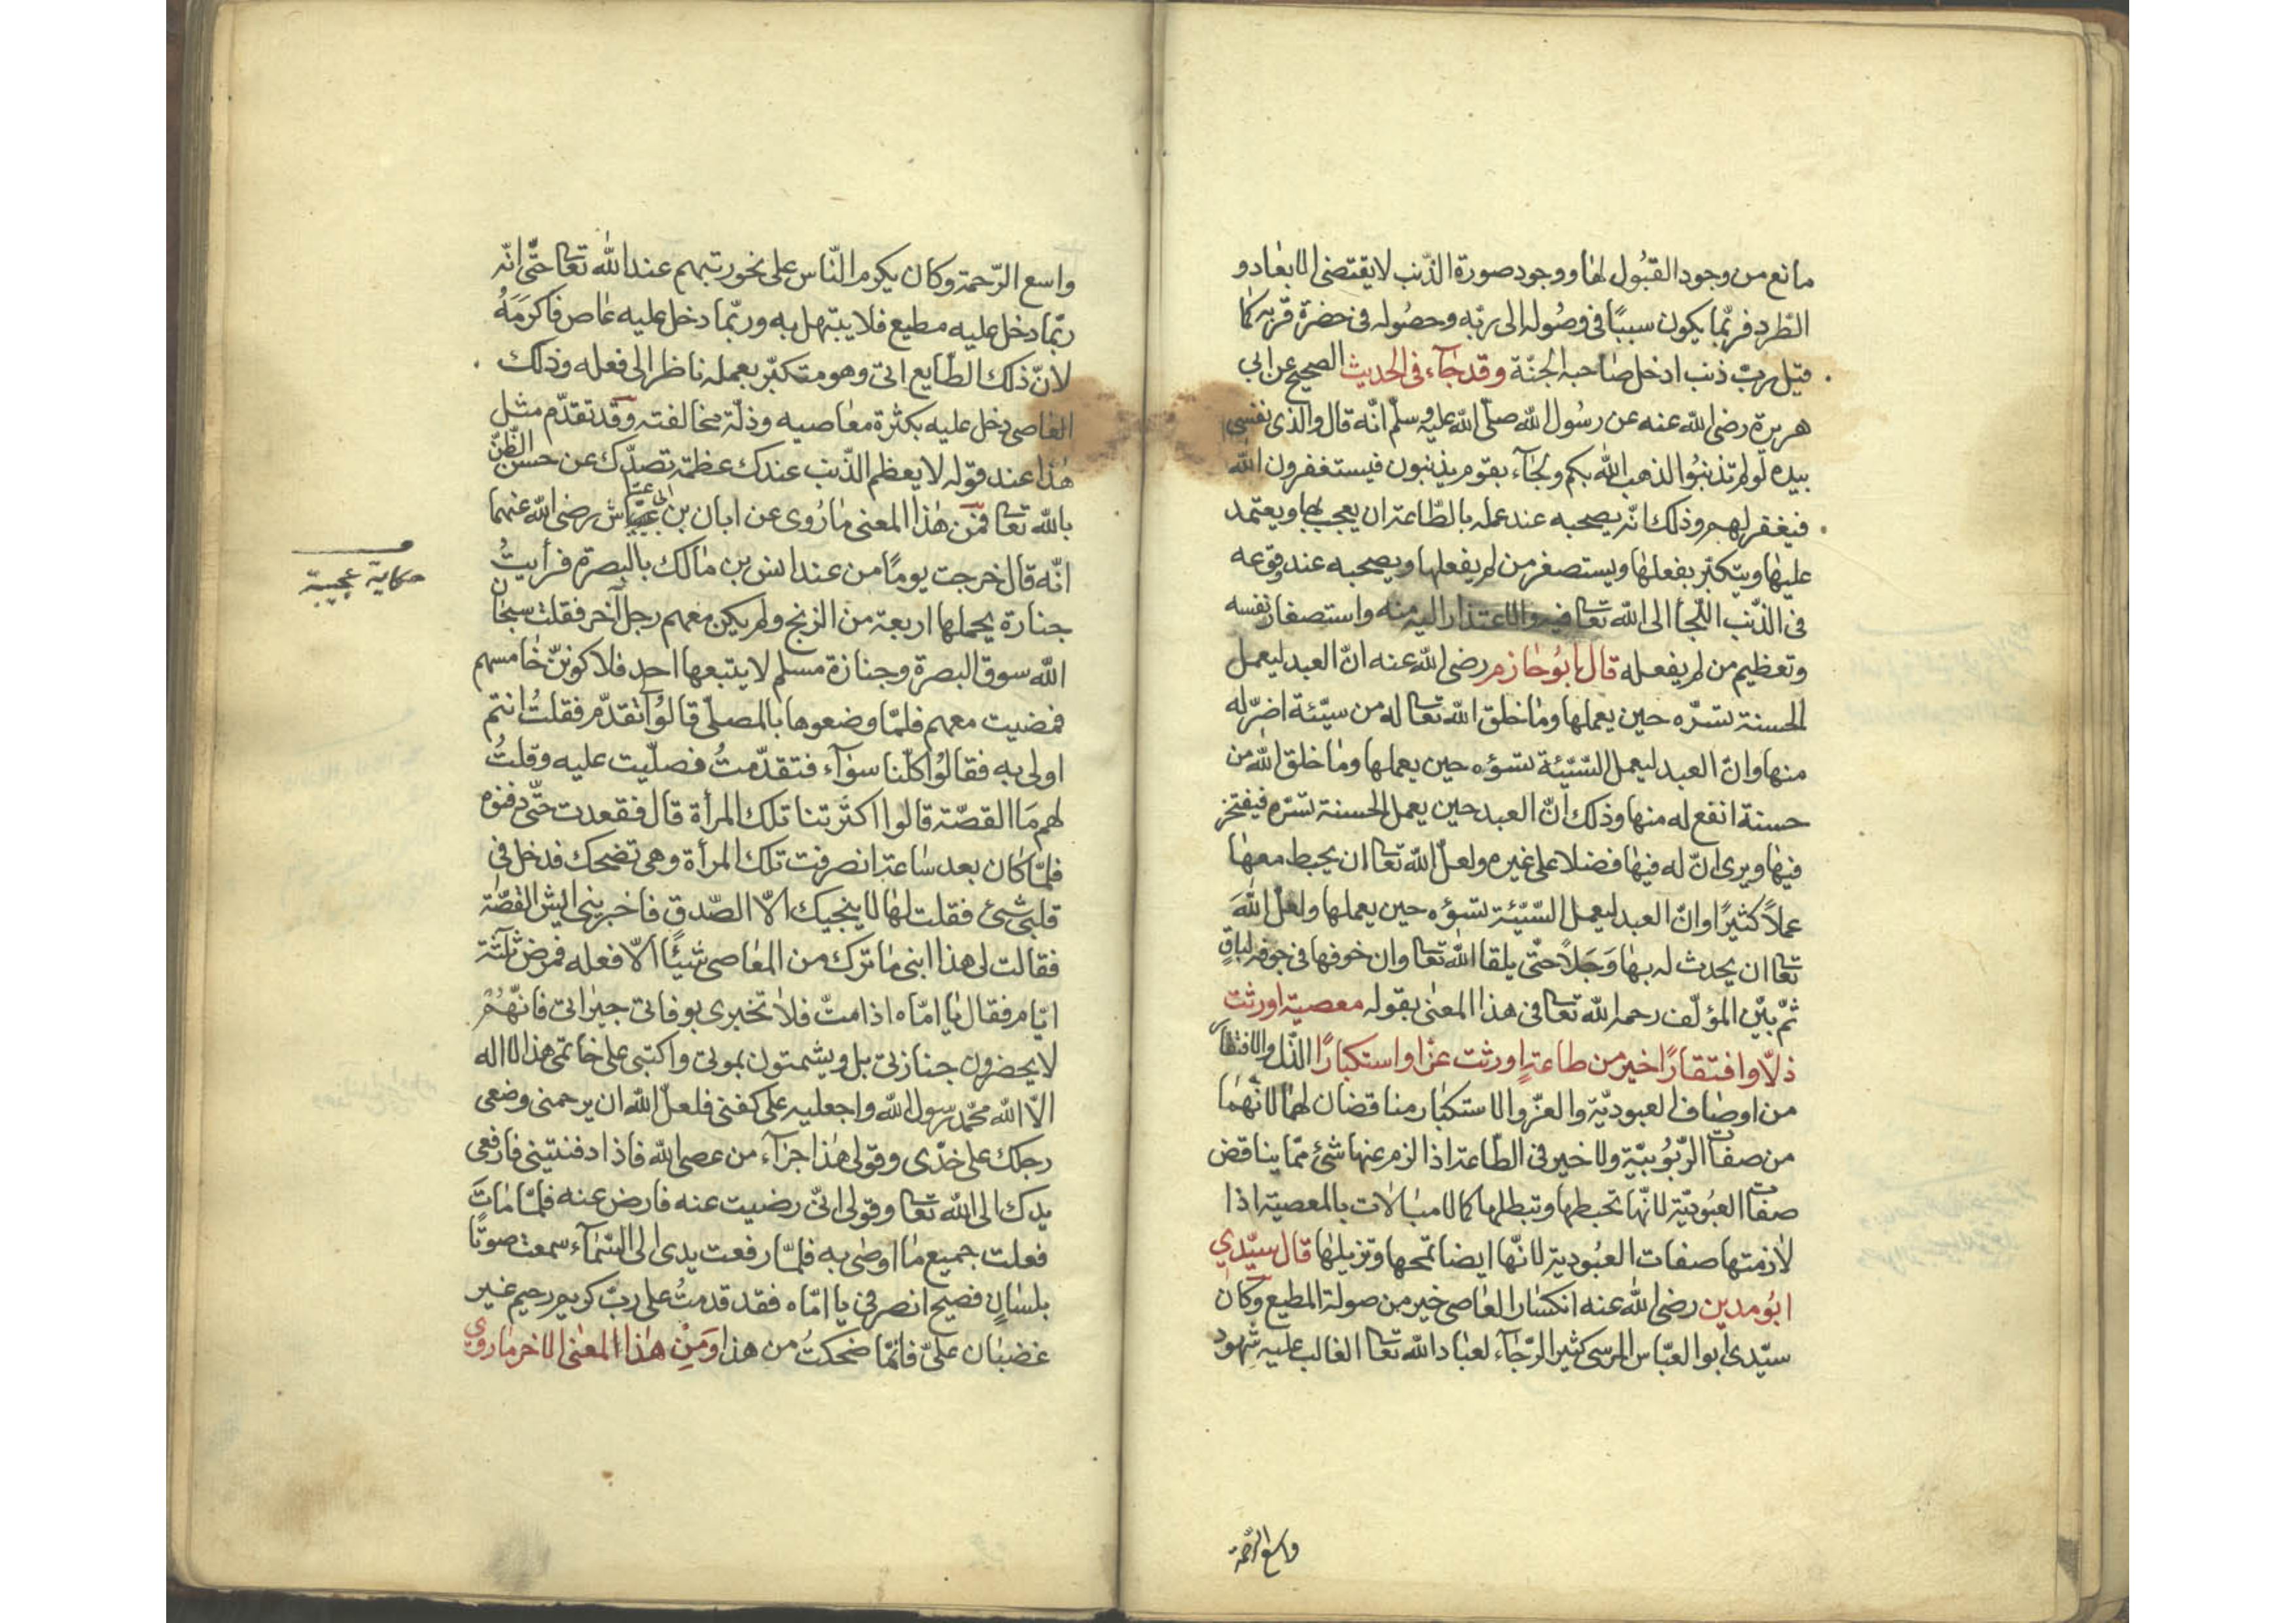 مانع من وجود القبُول لها ووجود صورة الذّنب لا يقتضى الابعاد و
الطّرد فربّما يكون سببًا فى وصُوله الى ربّه وحصُوله فى حضرة قربه كما
قيل ربّ ذنب ادخل صاحبه الجنّة وقد جآء فى الحديث الصحيح عن ابي
هريرة رضى اللّه عنه عن رسُول اللّه صلّى اللّه عليه وسلّم انّه قال والذى نفسى
بيده لو لم تذنبُوا لذهب اللّه بكم ولجآء بقوم يذنبون فيستغفرون اللّه
فيغفر لهم وذلك انّه يصحبه عند عمله بالطّاعة ان يعجب بها ويعتمد
عليها ويتكبّر بفعلها ويستصغر من لم يفعلها ويصحبه عند وقوعه
فى الذّنب اللّجأ الى اللّه تعا فيه والاعتذار اليه منه واستصغار نفسه
وتعظيم من لم يفعله قال ابُو حازم رضى اللّه عنه انّ العبد ليعمل
الحسنة تسّره حين يعملها وما خلق اللّه تعا له من سيّئة اضرّ له
منها وانّ العبد ليعمل السّيّئة تسؤه حين يعملها وما خلق اللّه من
حسنة انفع له منها وذلك انّ العبد حين يعمل الحسنة تسّره فيفتخر
فيها ويرى انّ له فيها فضلا على غيره ولعلّ اللّه تعا ان يحبط معها
عملاً كثيرًا وانّ العبد ليعمل السّيّئة تسؤه حين يعملها ولعلّ اللّهَ
تعا ان يحدث له بها وَجَلاً حتّى يلقا اللّه تعا وان خوفها فى جوفه لباقٍ
ثمّ بيّن المؤلّف رحمه اللّه تعا فى هذا المعنى بقوله معصية اورثت
ذلاّ وافتقارًا خير من طاعةٍ اورثت عزّا واستكبارًا الذّل والافتقار
من اوصاف العبوديّة والعزّ والاستكبار مناقضان لهما لانّهما
من صفات الرّبُوبيّة ولا خير فى الطّاعة اذا لزم عنها شئ ممّا يناقض
صفات العبُوديّة لانّها تحبطها وتبطلها كما لا مبالات بالمعصية اذا
لازمتها صفات العبُودية لانّها ايضا تمحها وتزيلها قال سيّدي
ابُو مدين رضى اللّه عنه انكسار العاصى خير من صولة المطيع وكان
سيّدى ابو العبّاس المرسى كثير الرّجآء لعباد اللّه تعا الغالب عليه شهود
واسع الرّحمة
واسع الرّحمة وكان يكرم النّاس على نحو رتبهم عند اللّه تعا حتّى انّه
ربّما دخل عليه مطيع فلا يبتهل به وربّما دخل عليه عاص فاكرمَهُ
لانّ ذلك الطّايع اتى وهو متكبّر بعمله ناظر الى فعله وذلك
العاصى دخل عليه بكثرة معاصيه وذلّة مخالفته وقد تقدّم مثل
هذا عند قوله لا يعظم الذّنب عندك عظمة تصدّك عن حسن الظّنّ
باللّه تعا فمن هذا المعنى ما رُوى عن ابان بن ابى عيّاش رضى اللّه عنهما
حكاية عجيبة
انّه قال خرجت يومًا من عند انس بن مالك بالبصرة فرأيتُ
جنازة يحملها اربعة من الزنج ولم يكن معهم رجل آخر فقلت سبحان
اللّه سوق البصرة وجنازة مسلم لا يتبعها احد فلاكوننّ خامسهم
فمضيت معهم فلمّا وضعوها بالمصلّى قالوُا تقدّم فقلتُ انتم
اولى به فقالوُا كلّنا سوآء فتقدّمتُ فصلّيت عليه وقلتُ
لهم مَا القصّة قالوا اكترتنا تلك المرأة قال فقعدت حتّى دفنوه
فلمّا كان بعد ساعة انصرفت تلك المرأة وهى تضحك فدخل فى
قلبى شئ فقلت لها لا ينجيك الاّ الصّدق فاخبرينى ايش القصّة
فقالت لى هذا ابنى ما ترك من المعاصى شيئًا الاّ فعله فمرض ثلثة
ايّام فقال يا امّاه اذا متّ فلا تخبرى بوفاتى جيرانى فانّهُمْ
لا يحضرون جنازتى بل ويشمتون بموتى واكتبى على خاتمى هذا لا اله
الاّ اللّه محمّد رسول اللّه واجعليه على كفنى فلعلّ اللّه ان يرحمنى وضعى
رجلك على خدّى وقولى هذا جزآء من عصى اللّه فاذا دفنتينى فارفعى
يدك الى اللّه تعا وقولى انّى رضيت عنه فارض عنه فلمّا ماتَ
فعلت جميع ما اوصى به فلمّا رفعت يدى الى السّمآء سمعت صوتًا
بلسانٍ فصيح انصرفى يا امّاه فقد قدمتُ على ربّ كريم رحيم غير
غضبان علىّ فانمّا ضحكتُ من هذا وَمِنْ هذا المعنى الاخر ما روي